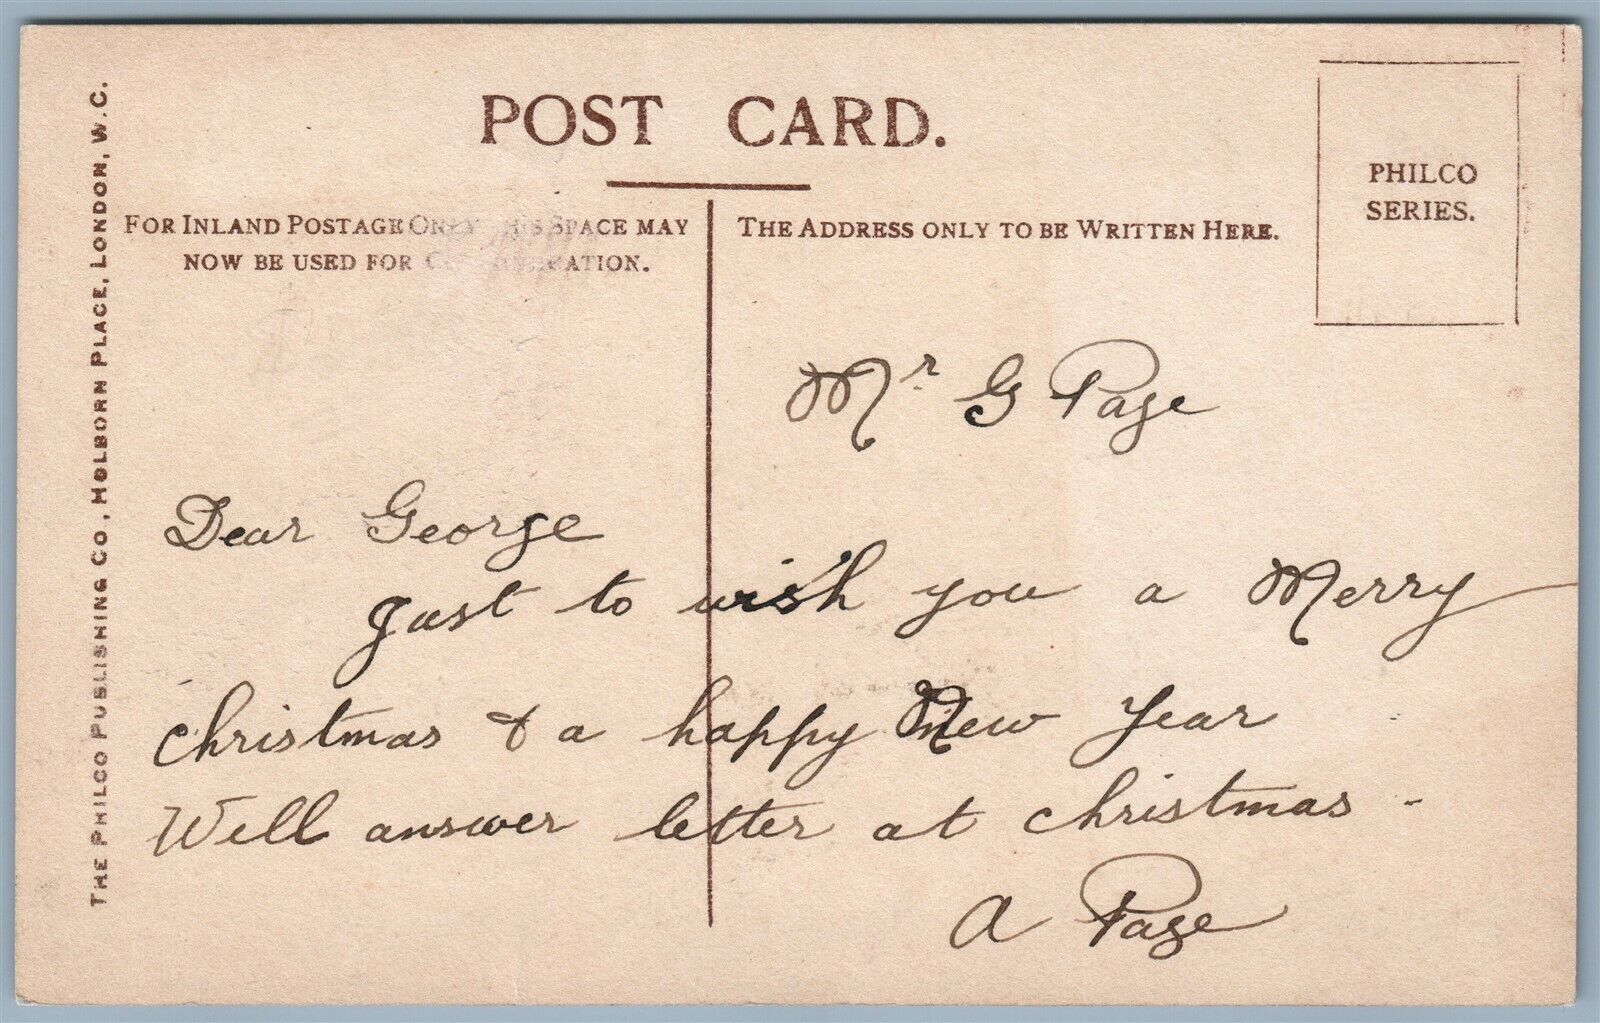 POST CARD.
PHILCO
SERIES.
FOR INLAND POSTAGE ONLY THIS SPACE MAY
NOW BE USED FOR
THE ADDRESS ONLY TO BE WRITTEN HERE.
THE PHILCO PUBLISHING CO., HOLBORN PLACE, LONDON, W.C.
Mr G Page
Dear George
Just to wish you a Merry
Christmas & a happy New Year
Will answer letter at christmas -
A Page